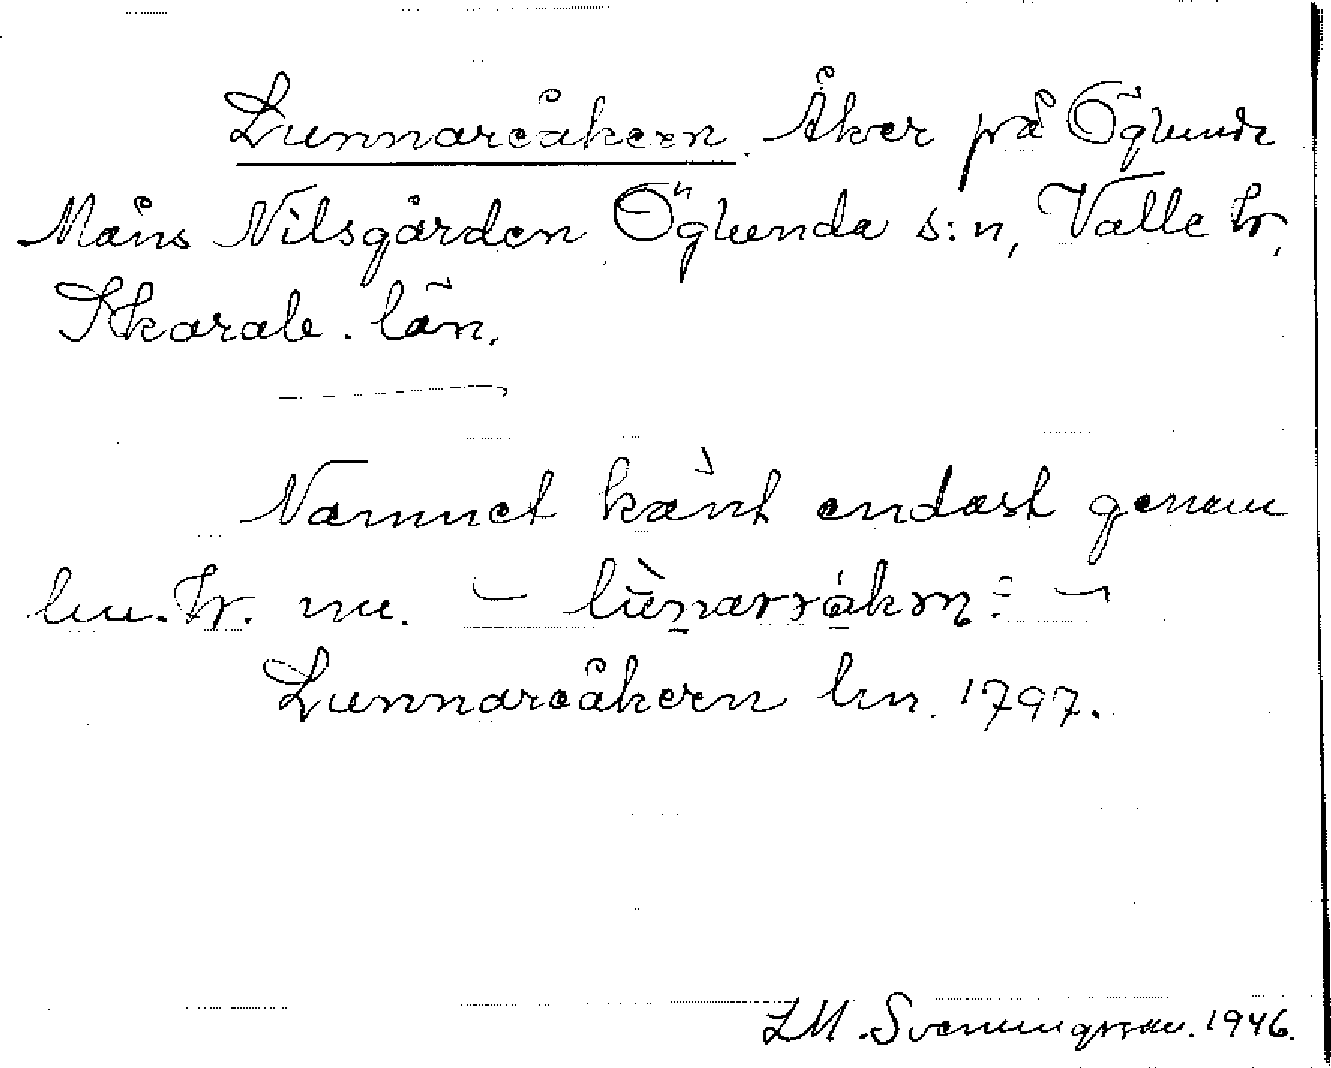 Lunnareåkern. Åker på Öglunda
Måns Nilsgården Öglunda s:n, Valle hr,
Skarab. län.
Namnet känt endast genom
lm. hr. nu.
Lunnareåkern lm. 1797.
LM. Svenningsson. 1946.